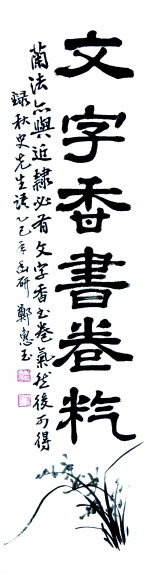 文字香書卷氣
蘭法亦與近隸必有文字香書卷氣然後可得
錄秋史先生語 乙巳年 研 鄭惠玉